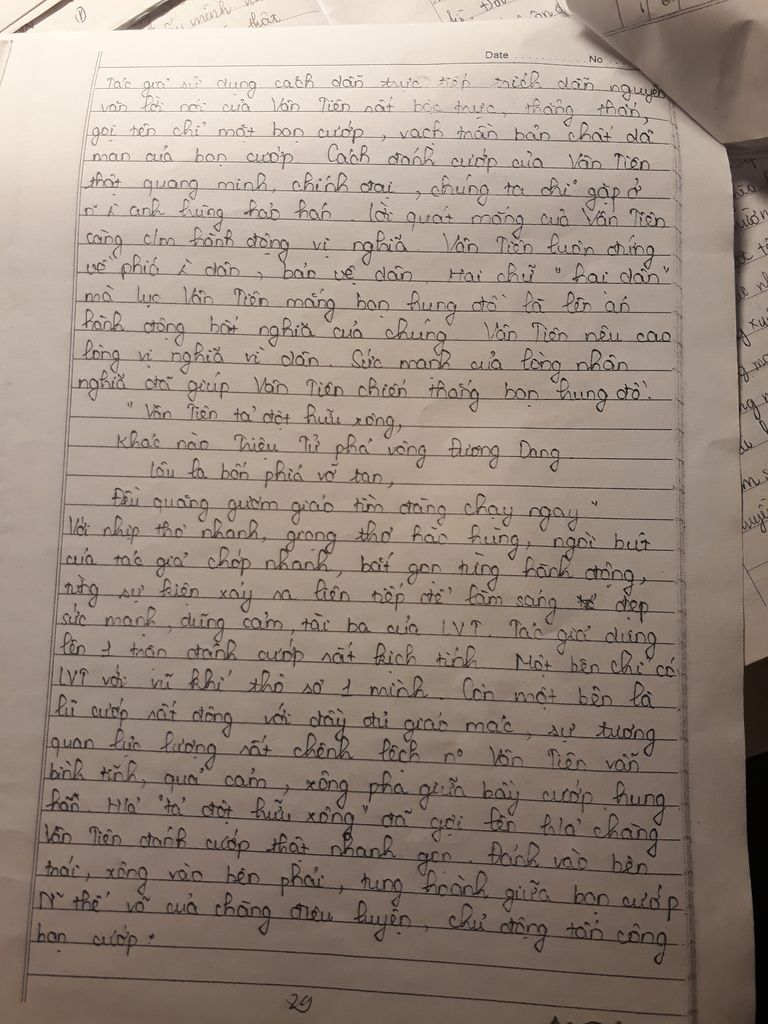 Date ............ No ......
Tác giả sử dụng cách dẫn trực tiếp trích dẫn nguyên
văn lời nói của Vân Tiên rất bộc trực, thẳng thắn,
gọi tên chỉ mặt bọn cướp, vạch trần bản chất dã
man của bọn cướp. Cách đánh cướp của Vân Tiên
thật quang minh, chính đại, chúng ta chỉ gặp ở
anh hùng hảo hán. Lời quát mắng của Vân Tiên
càng c/m hành động vị nghĩa. Vân Tiên luôn đứng
về phía dân, bảo vệ dân. Hai chữ "hại dân"
mà lục Vân Tiên mắng bọn hung đồ là lên án
hành động bất nghĩa của chúng. Vân Tiên nêu cao
lòng vị nghĩa vì dân. Sức mạnh của lòng nhân
nghĩa đã giúp Vân Tiên chiến thắng bọn hung đồ.
"Vân Tiên tả đột hữu xông,
Khác nào Triệu Tử phá vòng Đương Dang
Lâu la bốn phía vỡ tan,
Đều quăng gươm giáo tìm đàng chạy ngay"
Với nhịp thơ nhanh, giọng thơ hào hùng, ngòi bút
của tác giả chớp nhanh, bắt gọn từng hành động,
từng sự kiện xảy ra liên tiếp để làm sáng đẹp
sức mạnh, dũng cảm, tài ba của LVT. Tác giả dựng
lên 1 trận đánh cướp rất kịch tính. Một bên chỉ có
LVT với vũ khí thô sơ 1 mình. Còn một bên là
lũ cướp rất đông với đầy đủ giáo mác, sự tương
quan lực lượng rất chênh lệch Vân Tiên vẫn
bình tĩnh, quả cảm, xông pha giữa bầy cướp hung
hãn. H/ả "tả đột hữu xông" đã gợi lên h/ả chàng
Vân Tiên đánh cướp thật nhanh gọn. Đánh vào bên
trái, xông vào bên phải, tung hoành giữa bọn cướp
thế võ của chàng điêu luyện, chủ động tấn công
bọn cướp.
29